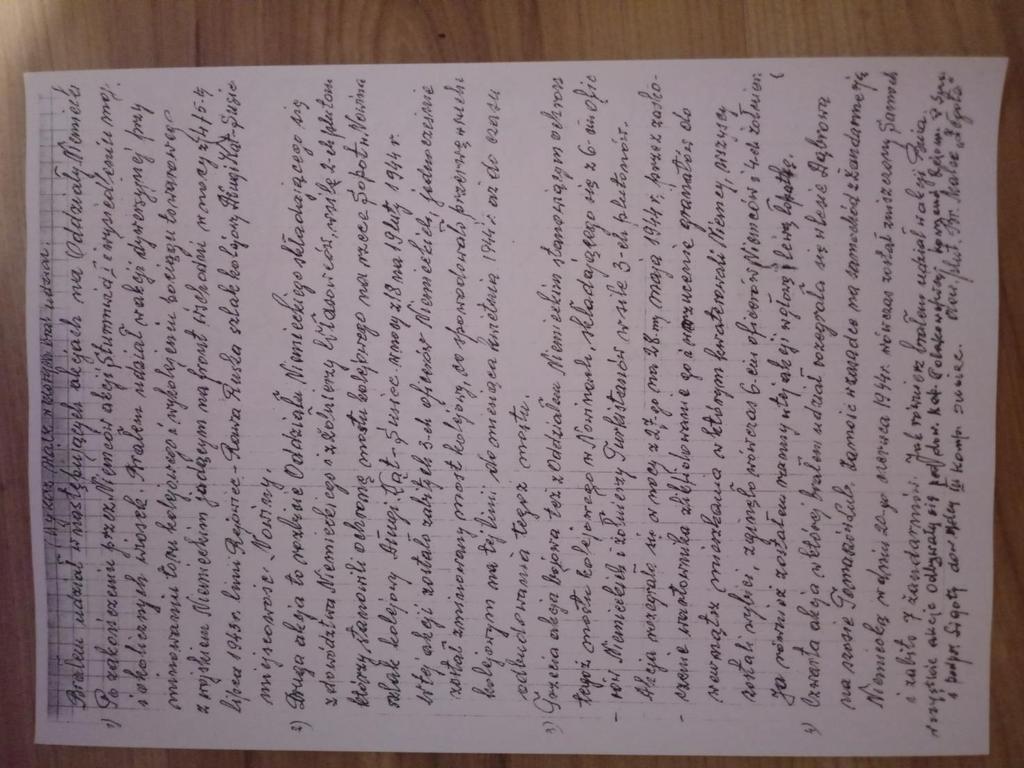 Brałem udział w następujących akcjach na Oddziały Niemieckie
1) Po zakończeniu przez Niemców akcji tłumnicz i wysiedleniu mcy:
i okolicznych wiosek. Brałem udział w akcji dywersyjnej przy
minowaniu toru kolejowego i wykolejeniu pociągu towarowego
z wojskiem Niemieckim jadącym na front Wschodni w nocy z 14/15-go
lipca 1943r. linii Rejowiec - Rawa Ruska szlak kolejowy Długi Kąt-Susiec
miejscowość Nowiny.
2) Druga akcja to rozbicie Oddziału Niemieckiego składającego się
z dowództwa Niemieckiego i żołnierzy Własowców, w sile 2-ch plutonów
którzy stanowili ochronę mostu kolejowego na rzece Sopot w. Nowiny
szlak kolejowy Długi Kąt - Susiec w nocy z 18 na 19 luty 1944 r.
W tej akcji zostało zabitych 3-ch oficerów Niemieckich, jednocześnie
został zminowany most kolejowy, co spowodowało przerwę w ruchu
kolejowym na tej linii do miesiąca kwietnia 1944 r. aż do czasu
odbudowania tegoż mostu.
3) Trzecia akcja bojowa też z Oddziałem Niemieckim stanowiącym ochronę
tegoż mostu kolejowego w Nowinach, składającego się z 6-ciu ofic
- rów Niemieckich i żołnierzy Turkistanów w sile 3-ch plutonów.
Akcja rozegrała się w nocy z 27-go na 28-my maja 1944 r. przez zasko-
- czenie wartownika zlikwidowanie go i wrzucenie granatów do
wewnątrz mieszkania w którym kwaterowali Niemcy, wszyscy
zostali wybici, zginęło wówczas 6-ciu oficerów Niemców i 4-ch żołnierzy
Ja również zostałem ranny w tej akcji w głowę i lewą łopatkę.
4) Czwarta akcja w której brałem udział rozegrała się w lesie Dąbrowa
na szosie Tomaszów Lub. Zamość w zasadce na samochód z żandarmerią
Niemiecką w dniu 20-go czerwca 1944 r. wówczas został zniszczony samoch
i zabito 7 żandarmów. Jak również brałem udział w akcji "Burza".
wszystkie akcje odbywały się pod
III komp. Susiec.